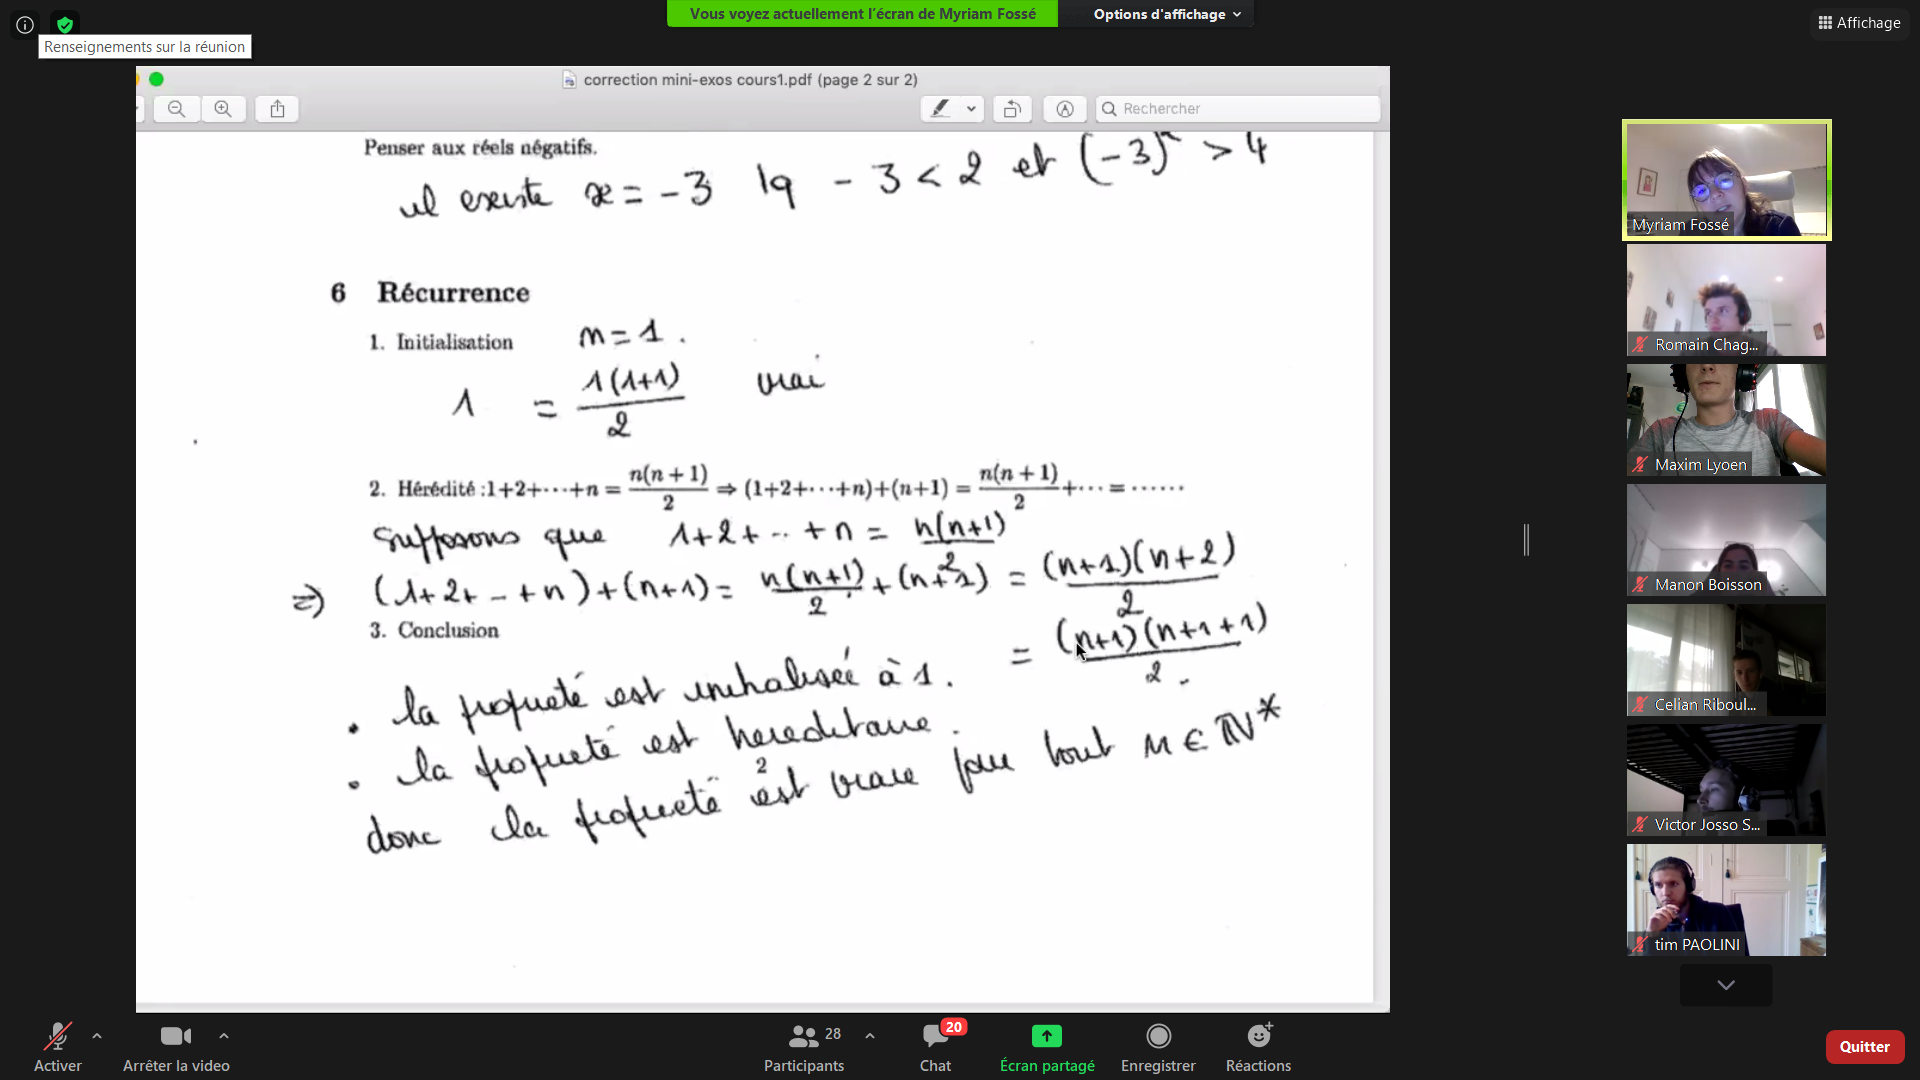 Vous voyez actuellement l'écran de Myriam Fossé
Options d'affichage
Affichage
Renseignements sur la réunion
correction mini-exos cours1.pdf (page 2 sur 2)
Rechercher
Penser aux réels négatifs.
il existe x = -3 tq -3 < 2 et (-3)² > 4
6 Récurrence
1. Initialisation n = 1.
1 = 1(1+1)/2 vrai
2. Hérédité :1+2+⋯+n = n(n+1)/2 ⇒ (1+2+⋯+n)+(n+1) = n(n+1)/2 +⋯ = ⋯⋯
Supposons que 1+2+..+n = n(n+1)/2
⇒ (1+2+...+n)+(n+1) = n(n+1)/2 + (n+1) = (n+1)(n+2)/2
3. Conclusion
= (n+1)(n+1+1)/2.
• la propriété est initialisée à 1.
• la propriété est hereditaire.
2
donc la propriété est vraie pour tout n ∈ ℕ*
Myriam Fossé
Romain Chag...
Maxim Lyoen
Manon Boisson
Celian Riboul...
Victor Josso S...
tim PAOLINI
Activer
Arrêter la video
Participants
28
Chat
20
Écran partagé
Enregistrer
Réactions
Quitter